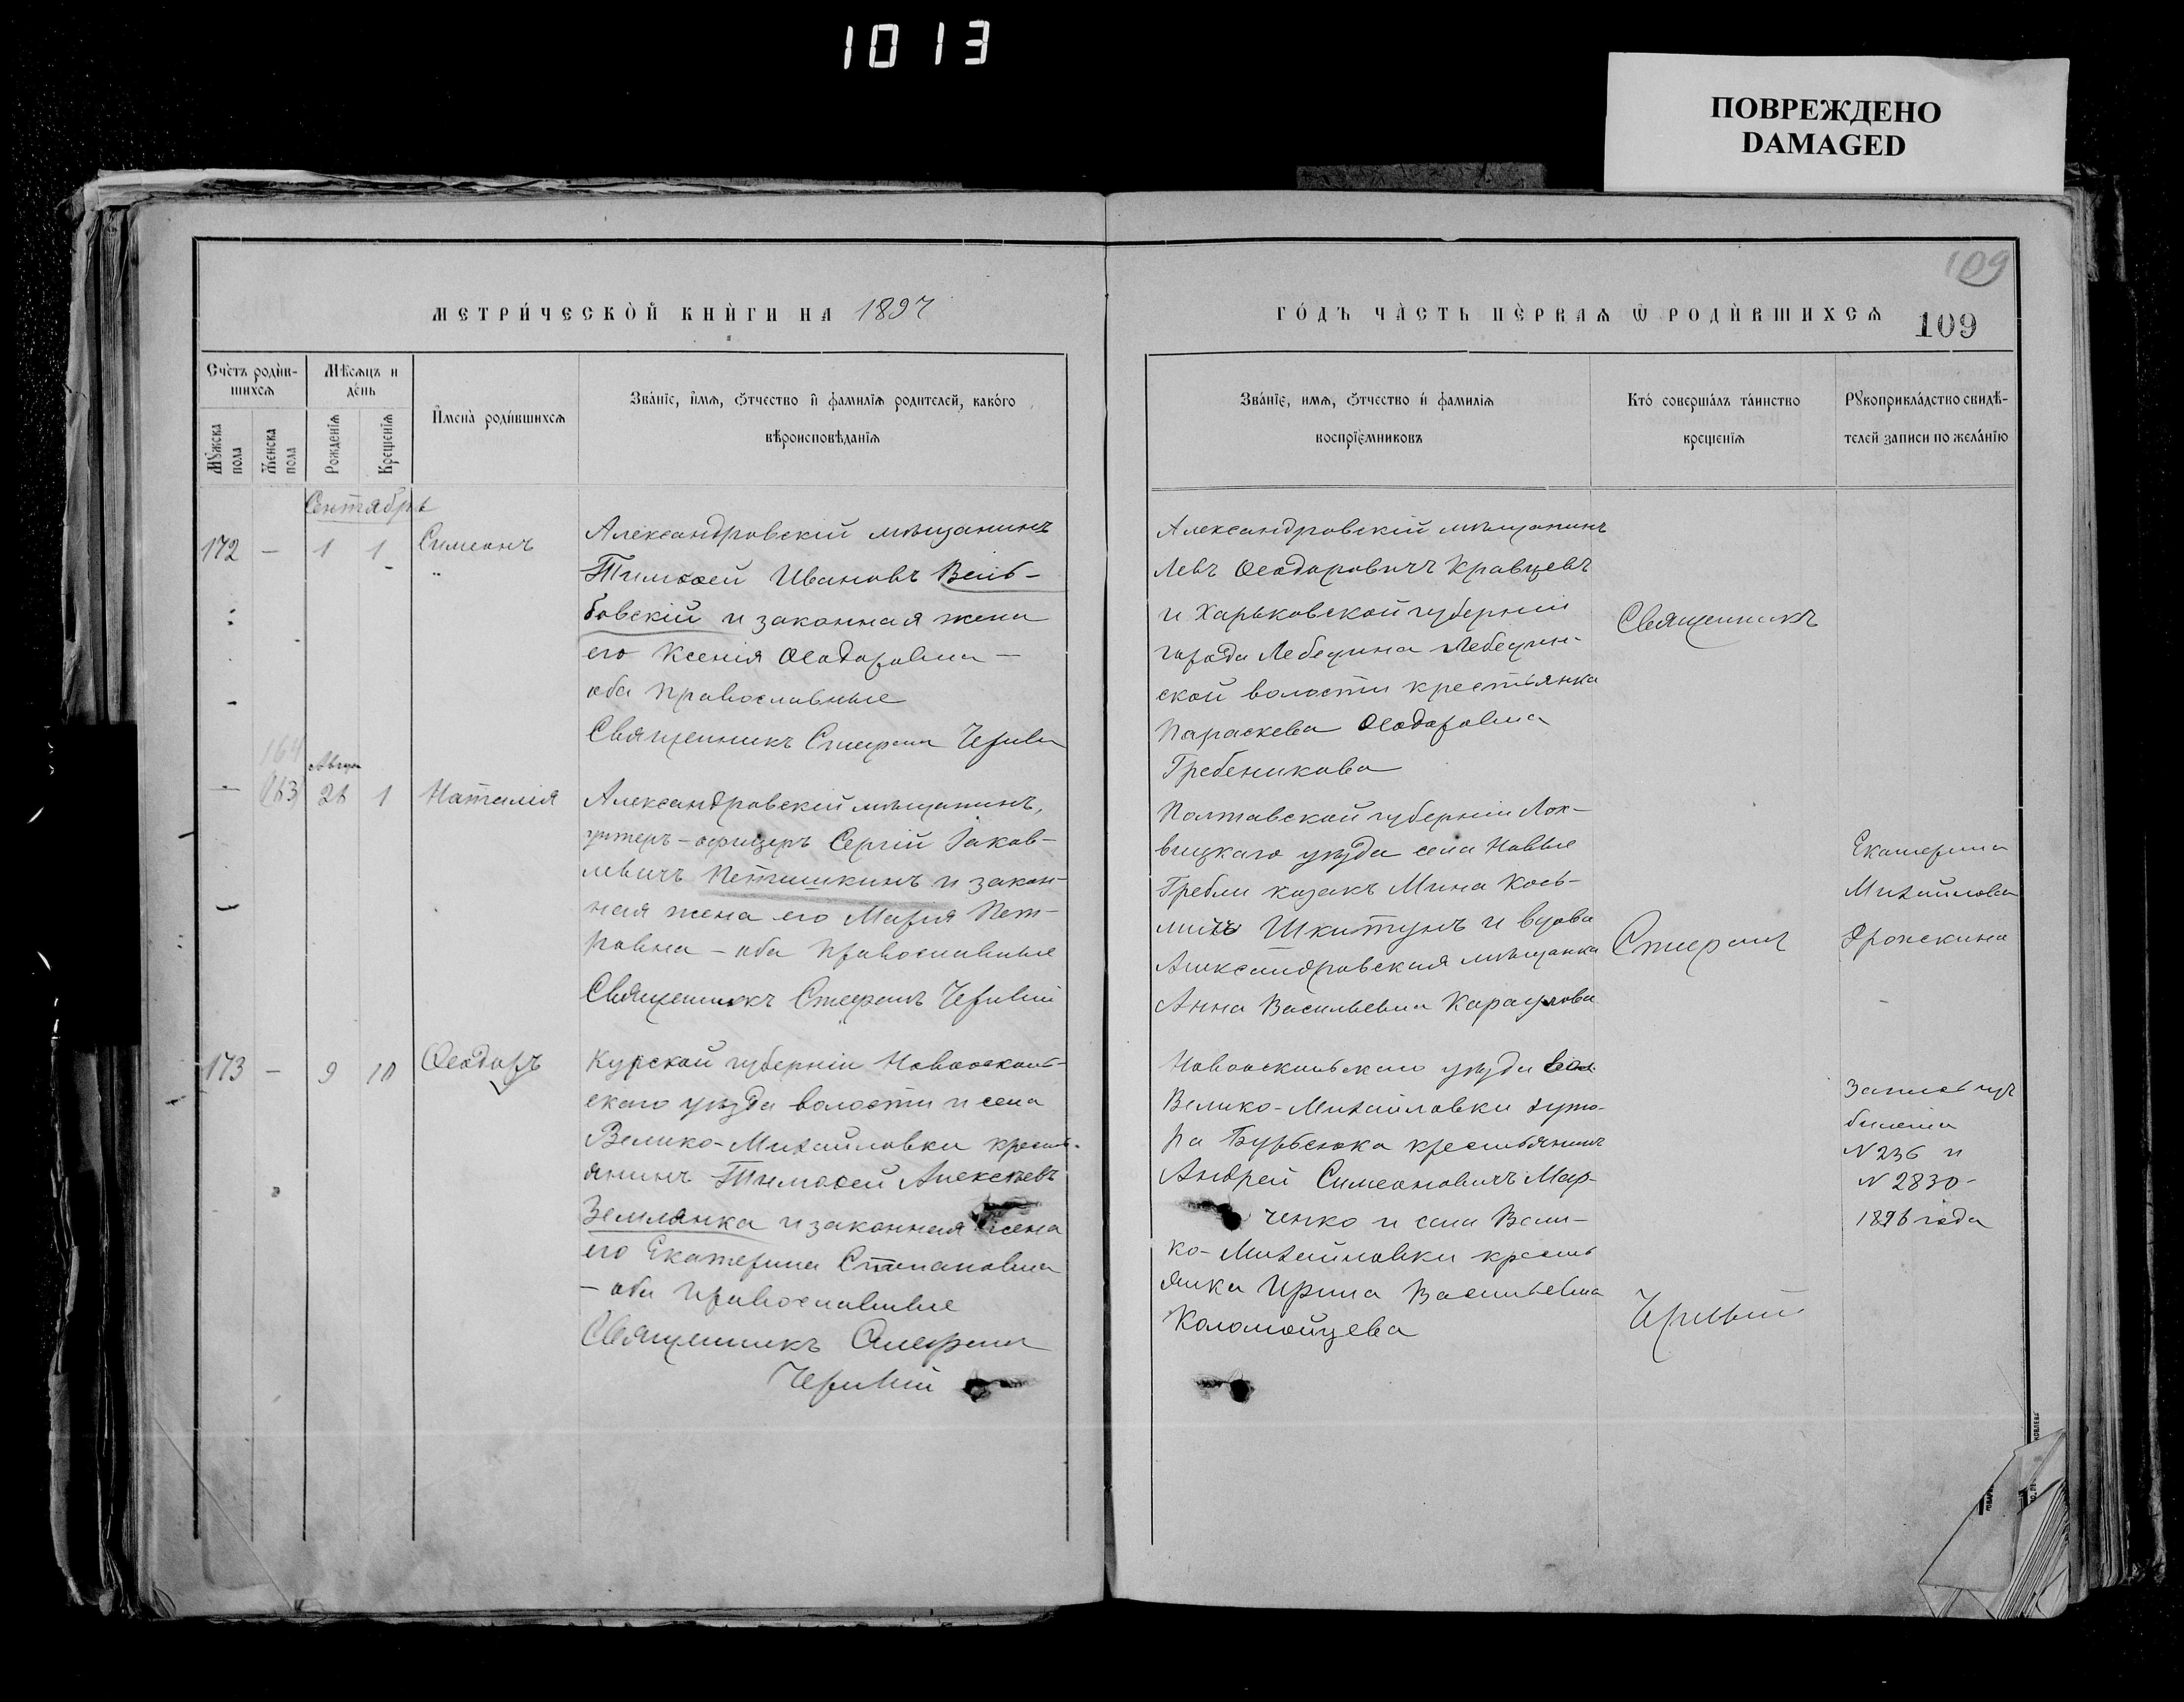 1013
ПОВРЕЖДЕНО
DAMAGED
109
МЕТРИ́ЧЕСКОЙ КНИ́ГИ НА 1897
ГО́ДЪ ЧА́СТЬ ПЕ́РВАѦ Ѿ РОДИ́ВШИХСѦ
109
Сче́тъ роди́в-
шихсѧ
Мѣ́сѧцъ и
де́нь
Имена̀ роди́вшихсѧ
Зва́нїе, и҆́мѧ, ѻ҆́тчество и҆ фами́лїѧ родителей, како́го
вѣроисповѣ́данїѧ
Мꙋ́жска
пола
Же́нска
пола
Рожде́нїѧ
Креще́нїѧ
Зва́нїе, имѧ, ѻ҆́тчество и҆ фами́лїѧ
воспрїе́мниковъ
Кто́ соверша́лъ та́инство
креще́нїѧ
Рꙋкоприкла́дство свидѣ́-
телей записи по жела́нїю
Сентябрь
172 — 1 1 Симеонъ
Александровскій мѣщанинъ
Тимоѳей Ивановъ
бовскій и законная жена
его Ксенія Ѳеодоровна —
оба православные
Священникъ Стефанъ
Александровскій мѣщанинъ
Левъ Ѳеодоровичъ Кравцевъ
и Харьковской губерніи
города Лебедина Лебедин-
ской волости крестьянка
Параскева Ѳеодоровна
Гребеникова
Священникъ
164
— 163 Авгус 26 1 Наталія
Александровскій мѣщанинъ,
унтеръ-офицеръ Сергій Іаков-
левичъ Петишкинъ и закон-
ная жена его Марія Пет-
ровна — оба православные
Священникъ Стефанъ
Полтавской губерніи Лох-
вицкаго уѣзда села Новые
Гребли казакъ Мина Кось-
мичъ Шкитунъ и вдова
Александровская мѣщанка
Анна Васильевна Караулова
Стефанъ
Екатерина
Михайлова
173 — 9 10 Ѳеодоръ
Курской губерніи Новооскол-
скаго уѣзда волости и села
Велико-Михайловки кресть-
янинъ Тимоѳей Алексѣевъ
Землянка и законная жена
его Екатерина Стефановна
— оба православные
Священникъ Стефанъ
Новооскольскаго уѣзда
Велико-Михайловки хуто-
ра крестьянинъ
Андрей Симеоновичъ Мар-
ченко и села Вели-
ко-Михайловки кресть
янка Ирина Васильевна
Коломойцева
билета
N 236 и
N 2830 -
1896 года